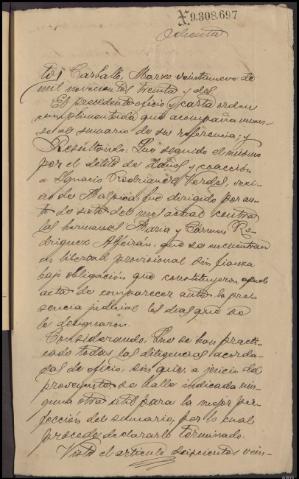 X.9.308.697
ochenta
to) Carballo, Marzo veintinueve de
mil novecientos treinta y dos.
El precedente oficio y carta orden
cumplimentada que acompaña únase
al sumario de su referencia; y
Resultando: Que seguido el mismo
por el delito de daños y coacción
a Ignacio Verdes, veci-
no de Malpica, fue dirigido por au-
to de siete del mes actual contra
las hermanas María y Carmen Ro-
dríguez Alfeirán, que se encuentran
en libertad provisional sin fianza
bajo obligación que constituyeron
acta de comparecer ante la pre-
sencia judicial los días que se
le designaron.
Considerando: Que se han practi-
cado todas las diligencias acorda-
das de oficio, sin que a juicio del
proveyente se halle indicada nin-
guna otra útil para la mejor per-
fección del sumario, por lo cual
procede declararle terminado.
Visto el artículo seiscientos vein-